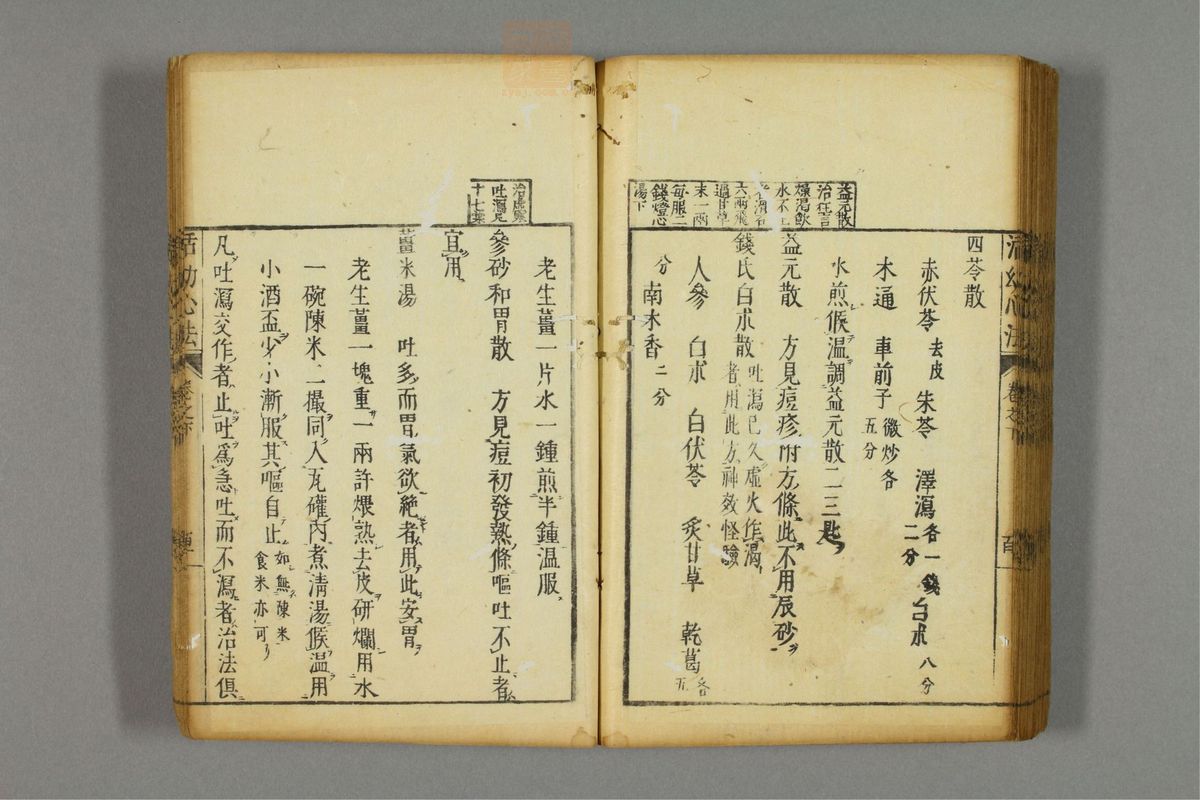 益元散
治狂言
燥渴飲
水不止
者滑石
六兩飛
過甘草
末一兩
每服二
錢燈心
湯下
四苓散
赤茯苓去皮 朱苓 澤瀉各一錢二分 白朮八分
木通 車前子微炒各五分
水煎候温調益元散二三匙
益元散 方見痘疹附方條此不用辰砂
錢氏白朮散吐瀉已久虛火作渴者用此方神效怪驗
人參 白朮 白茯苓 炙甘草 乾葛各五
分 南木香二分
活幼心法
卷之下
治虛寒
吐瀉尼
十七葉
老生薑一片水一鍾煎半鍾温服
參砂和胃散 方見痘初發熱條嘔吐不止者
宜用
薑米湯 吐多而胃氣欲絶者用此安胃
老生薑一塊重一兩許煨熟去皮研爛用水
一碗陳米一撮同入瓦礶內煮清湯候温用
小酒盃少小漸服其嘔自止如無陳米食米亦可
凡吐瀉交作者止吐爲急吐而不瀉者治法俱
活幼心法
卷之下